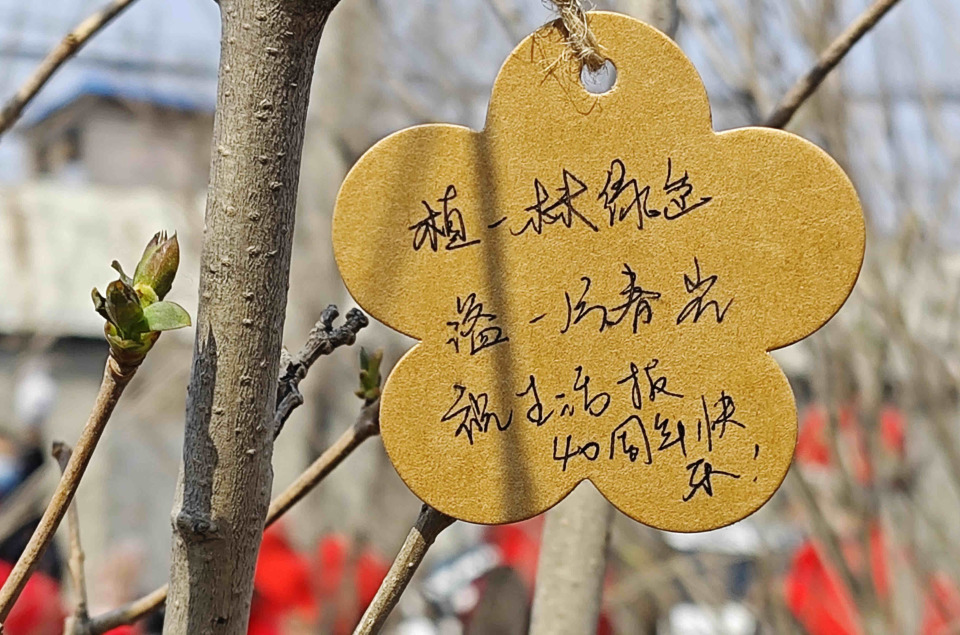 植一林绿色
溢一片春光
祝生活报
40周年快
乐!